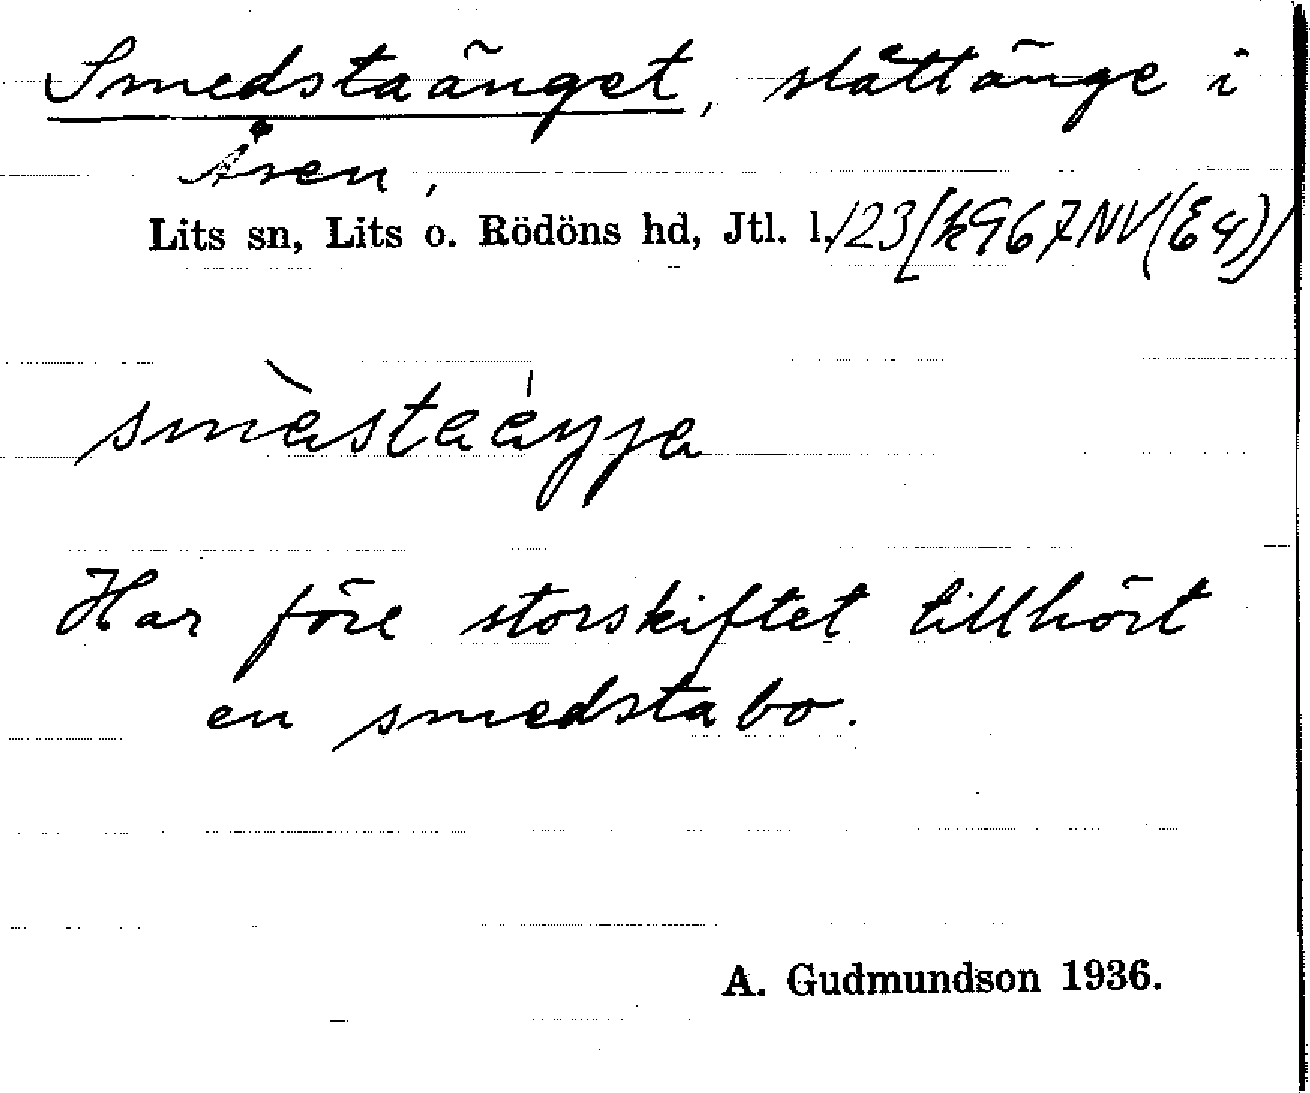 Smedstaänget, slåttänge i
Åsen,
Lits sn, Lits o. Rödöns hd, Jtl. l.
Har före storskiftet tillhört
en smedstabo.
A. Gudmundson 1936.